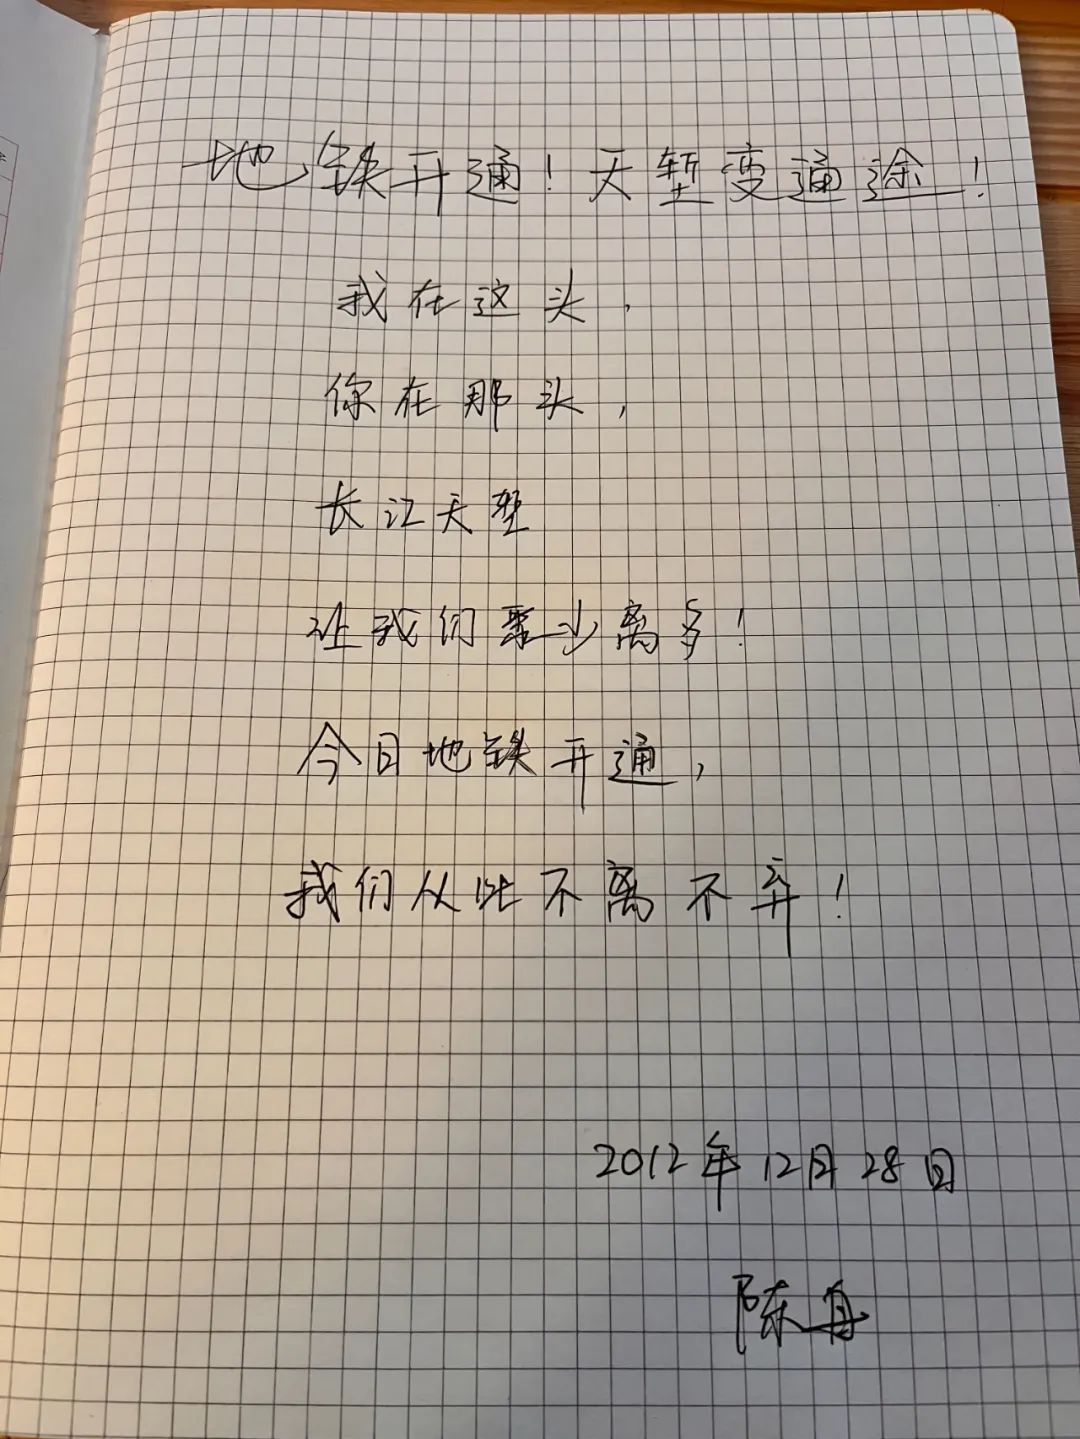 地铁开通！天堑变通途！
我在这头，
你在那头，
长江天堑
让我们聚少离多！
今日地铁开通，
我们从此不离不弃！
2012年12月28日
陈舟